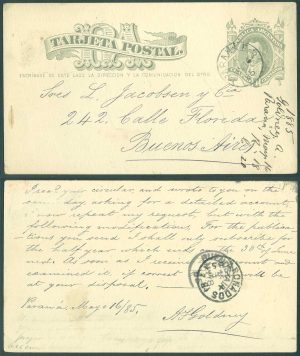 TARJETA POSTAL.
ESCRIBASE DE ESTE LADO LA DIRECCION Y LA COMUNICACION DEL OTRO
Sres L. Jacobsen y Cia
242. Calle Florida
Buenos Aires
1885
Goldney A.
Paraná, May 16
R. 18
I recd your circular, and wrote to you on the
same day asking for a detailed account.
I now repeat my request, but with the
following modifications. For the publica-
tions you send I shall only subscribe for
the year which ends the 30th June
As soon as I receive account and
examined it, if correct will be
at your disposal.
Paraná May 16/85.
A Goldney